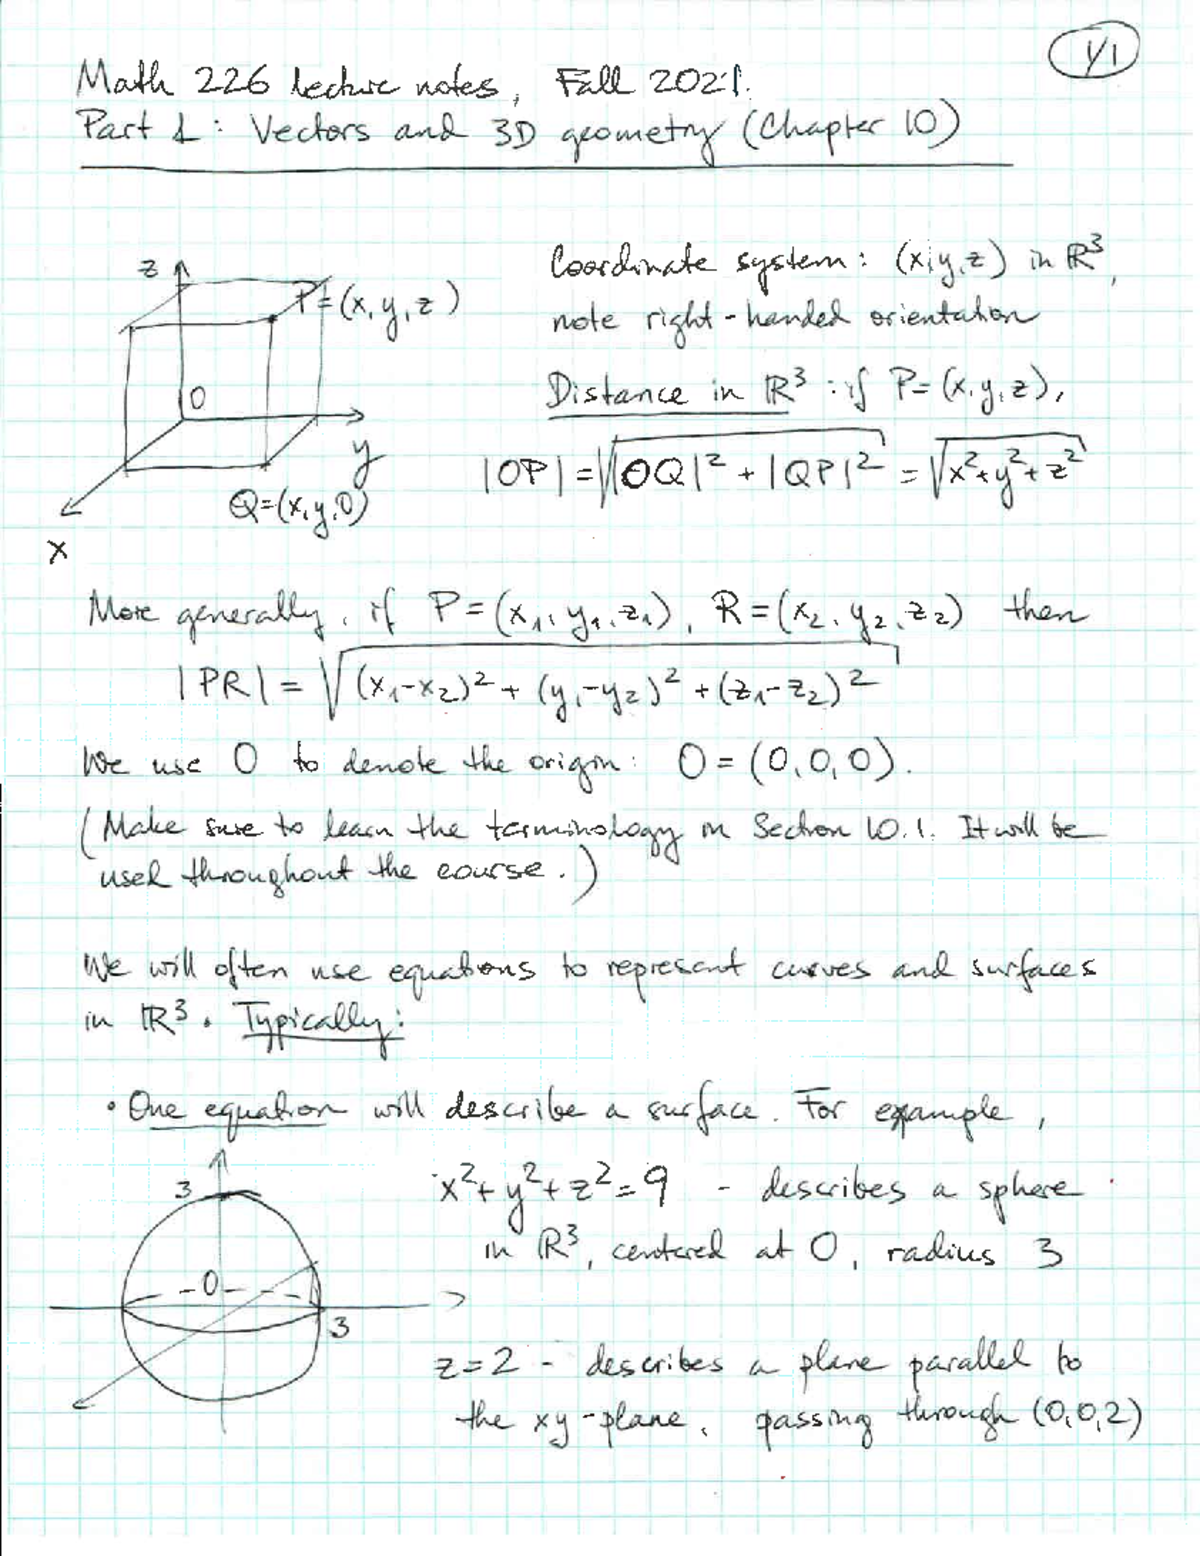 V1
Math 226 lecture notes, Fall 2021.
Part 1: Vectors and 3D geometry (Chapter 10)
z
P=(x,y,z)
O
y
Q=(x,y,0)
x
Coordinate system: (x,y,z) in ℝ³,
note right-handed orientation
Distance in ℝ³: if P=(x,y,z),
|OP| = √(|OQ|² + |QP|²) = √(x²+y²+z²)
More generally, if P=(x₁,y₁,z₁), R=(x₂,y₂,z₂) then
|PR| = √((x₁-x₂)² + (y₁-y₂)² + (z₁-z₂)²)
We use O to denote the origin: O=(0,0,0).
(Make sure to learn the terminology in Section 10.1. It will be
used throughout the course.)
We will often use equations to represent curves and surfaces
in ℝ³. Typically:
• One equation will describe a surface. For example,
3
O
3
x²+y²+z²=9 - describes a sphere
in ℝ³, centered at O, radius 3
z=2 - describes a plane parallel to
the xy-plane, passing through (0,0,2)